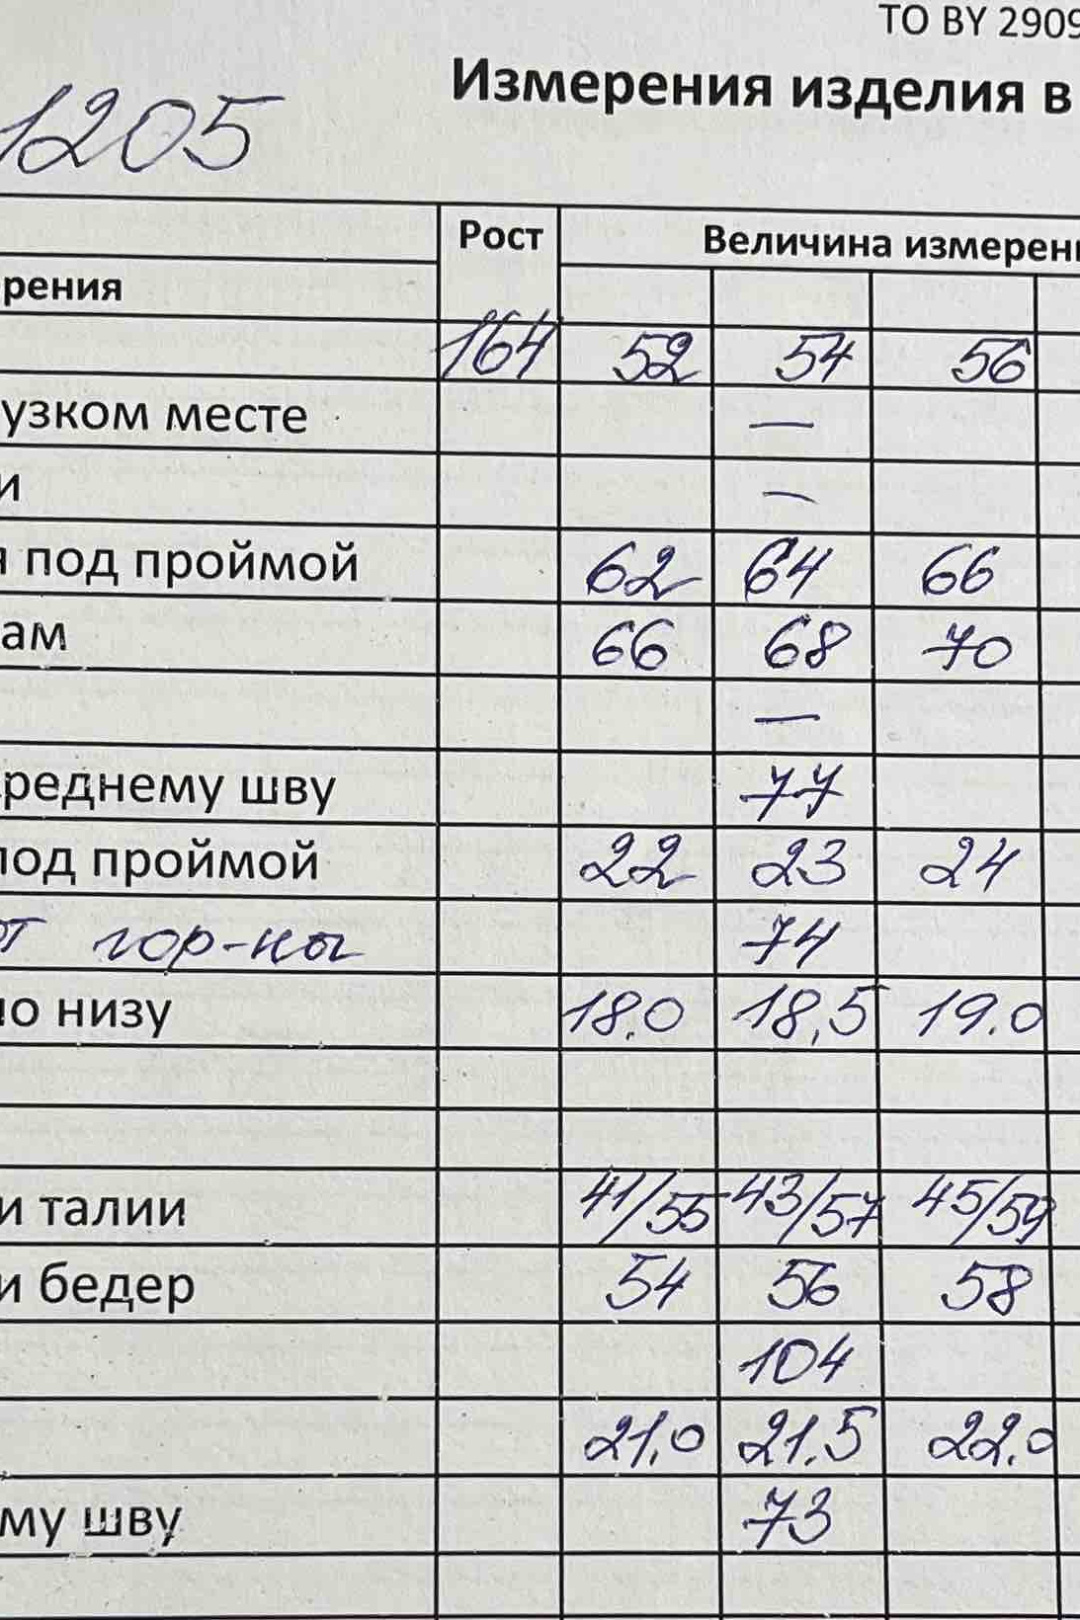 ТО BY 2909
Измерения изделия в
1205
Рост Величина измерен
рения
164 52 54 56
узком месте —
и —
я под проймой 62 64 66
ам 66 68 70
—
реднему шву 77
под проймой 22 23 24
от гор-ны 74
по низу 18.0 18,5 19.0
и талии 41/55 43/57 45/59
и бедер 54 56 58
104
21,0 21.5 22.0
му шву 73